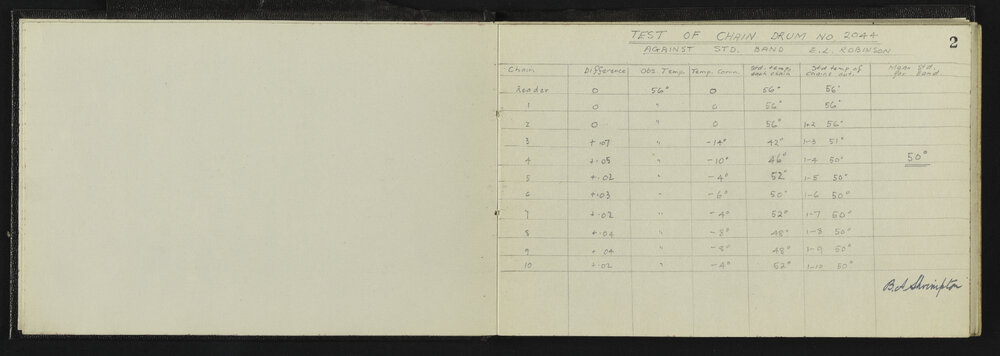 TEST OF CHAIN DRUM NO 2044
AGAINST STD. BAND E.L. ROBINSON
2
Chain Difference Obs. Temp. Temp. Corrn. Std. temp. each chain Std temp of chains out. Mean Std. for band
Reader 0 56° 0 56° 56°
1 0 " 0 56° 56°
2 0 " 0 56° 1-2 56°
3 +.07 " -14° 42° 1-3 51°
4 +.05 " -10° 46° 1-4 50° 50°
5 +.02 " -4° 52° 1-5 50°
6 +.03 " -6° 50° 1-6 50°
7 +.02 " -4° 52° 1-7 50°
8 +.04 " -8° 48° 1-8 50°
9 +.04 " -8° 48° 1-9 50°
10 +.02 " -4° 52° 1-10 50°
B.A Shrimpton